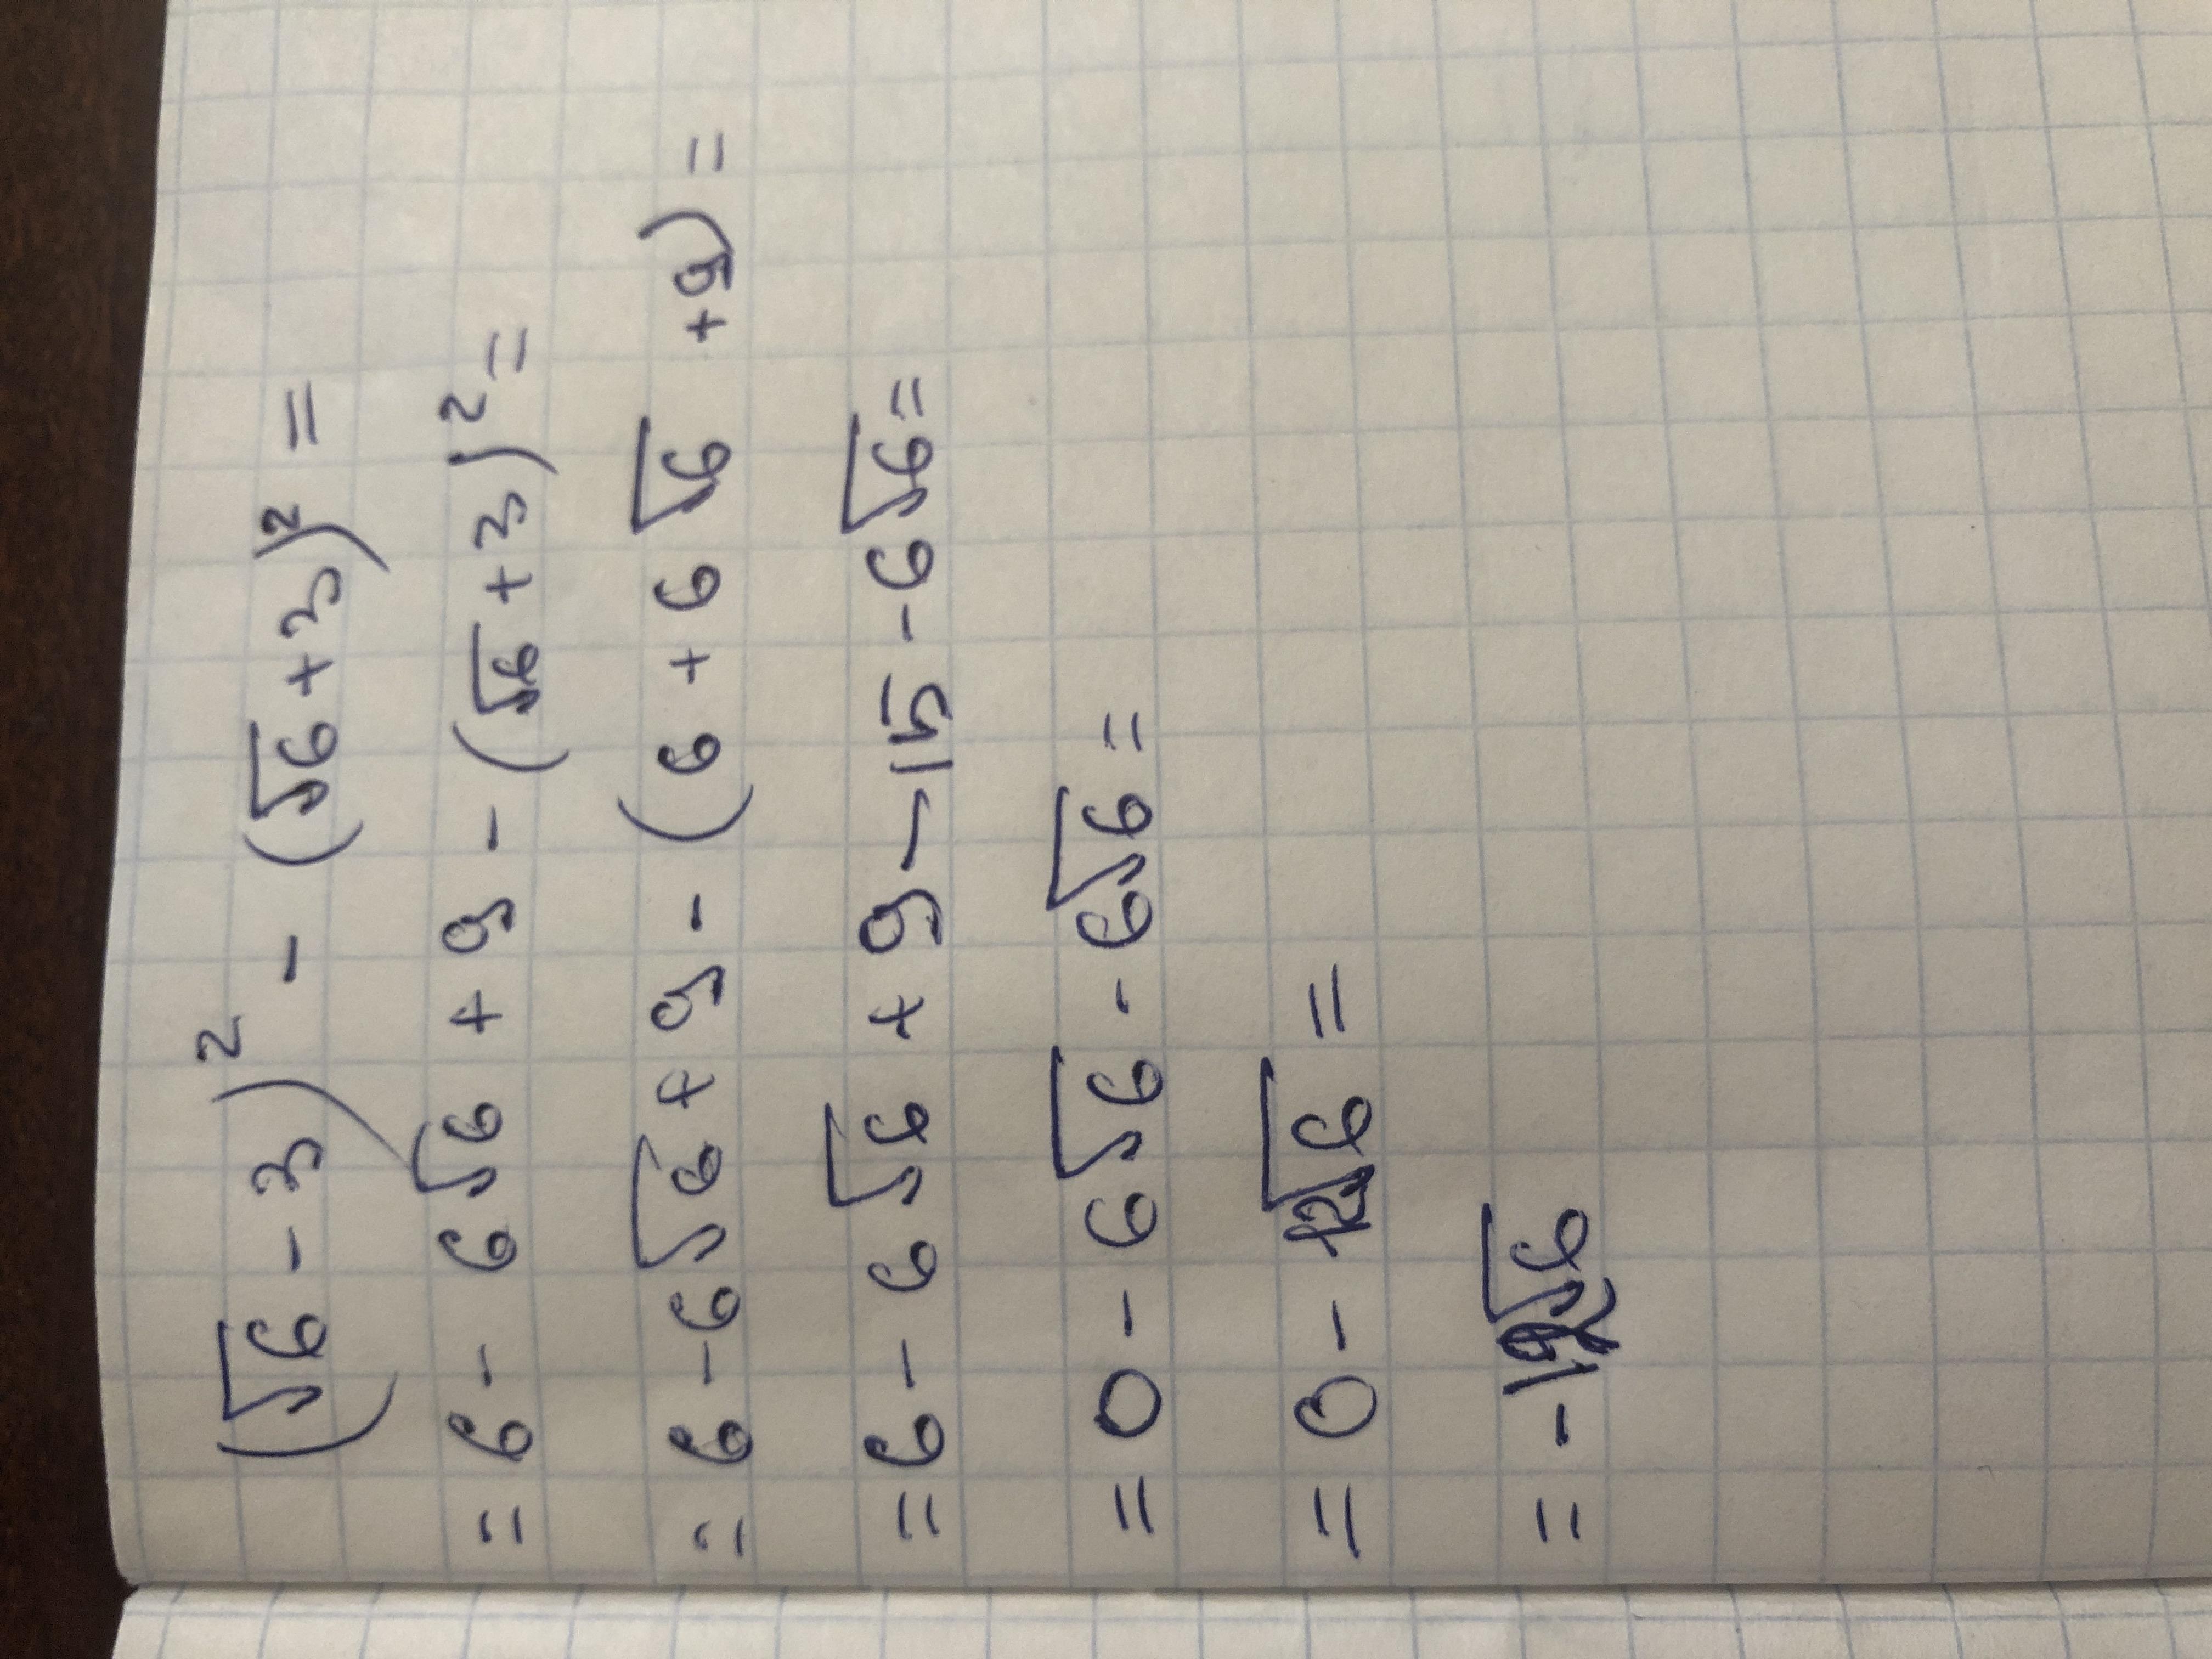 (√6 - 3)² - (√6 + 3)² =
= 6 - 6√6 + 9 - (√6 + 3)² =
= 6 - 6√6 + 9 - (6 + 6√6 + 9) =
= 6 - 6√6 + 9 - 15 - 6√6 =
= 0 - 6√6 - 6√6 =
= 0 - 12√6 =
= - 12√6